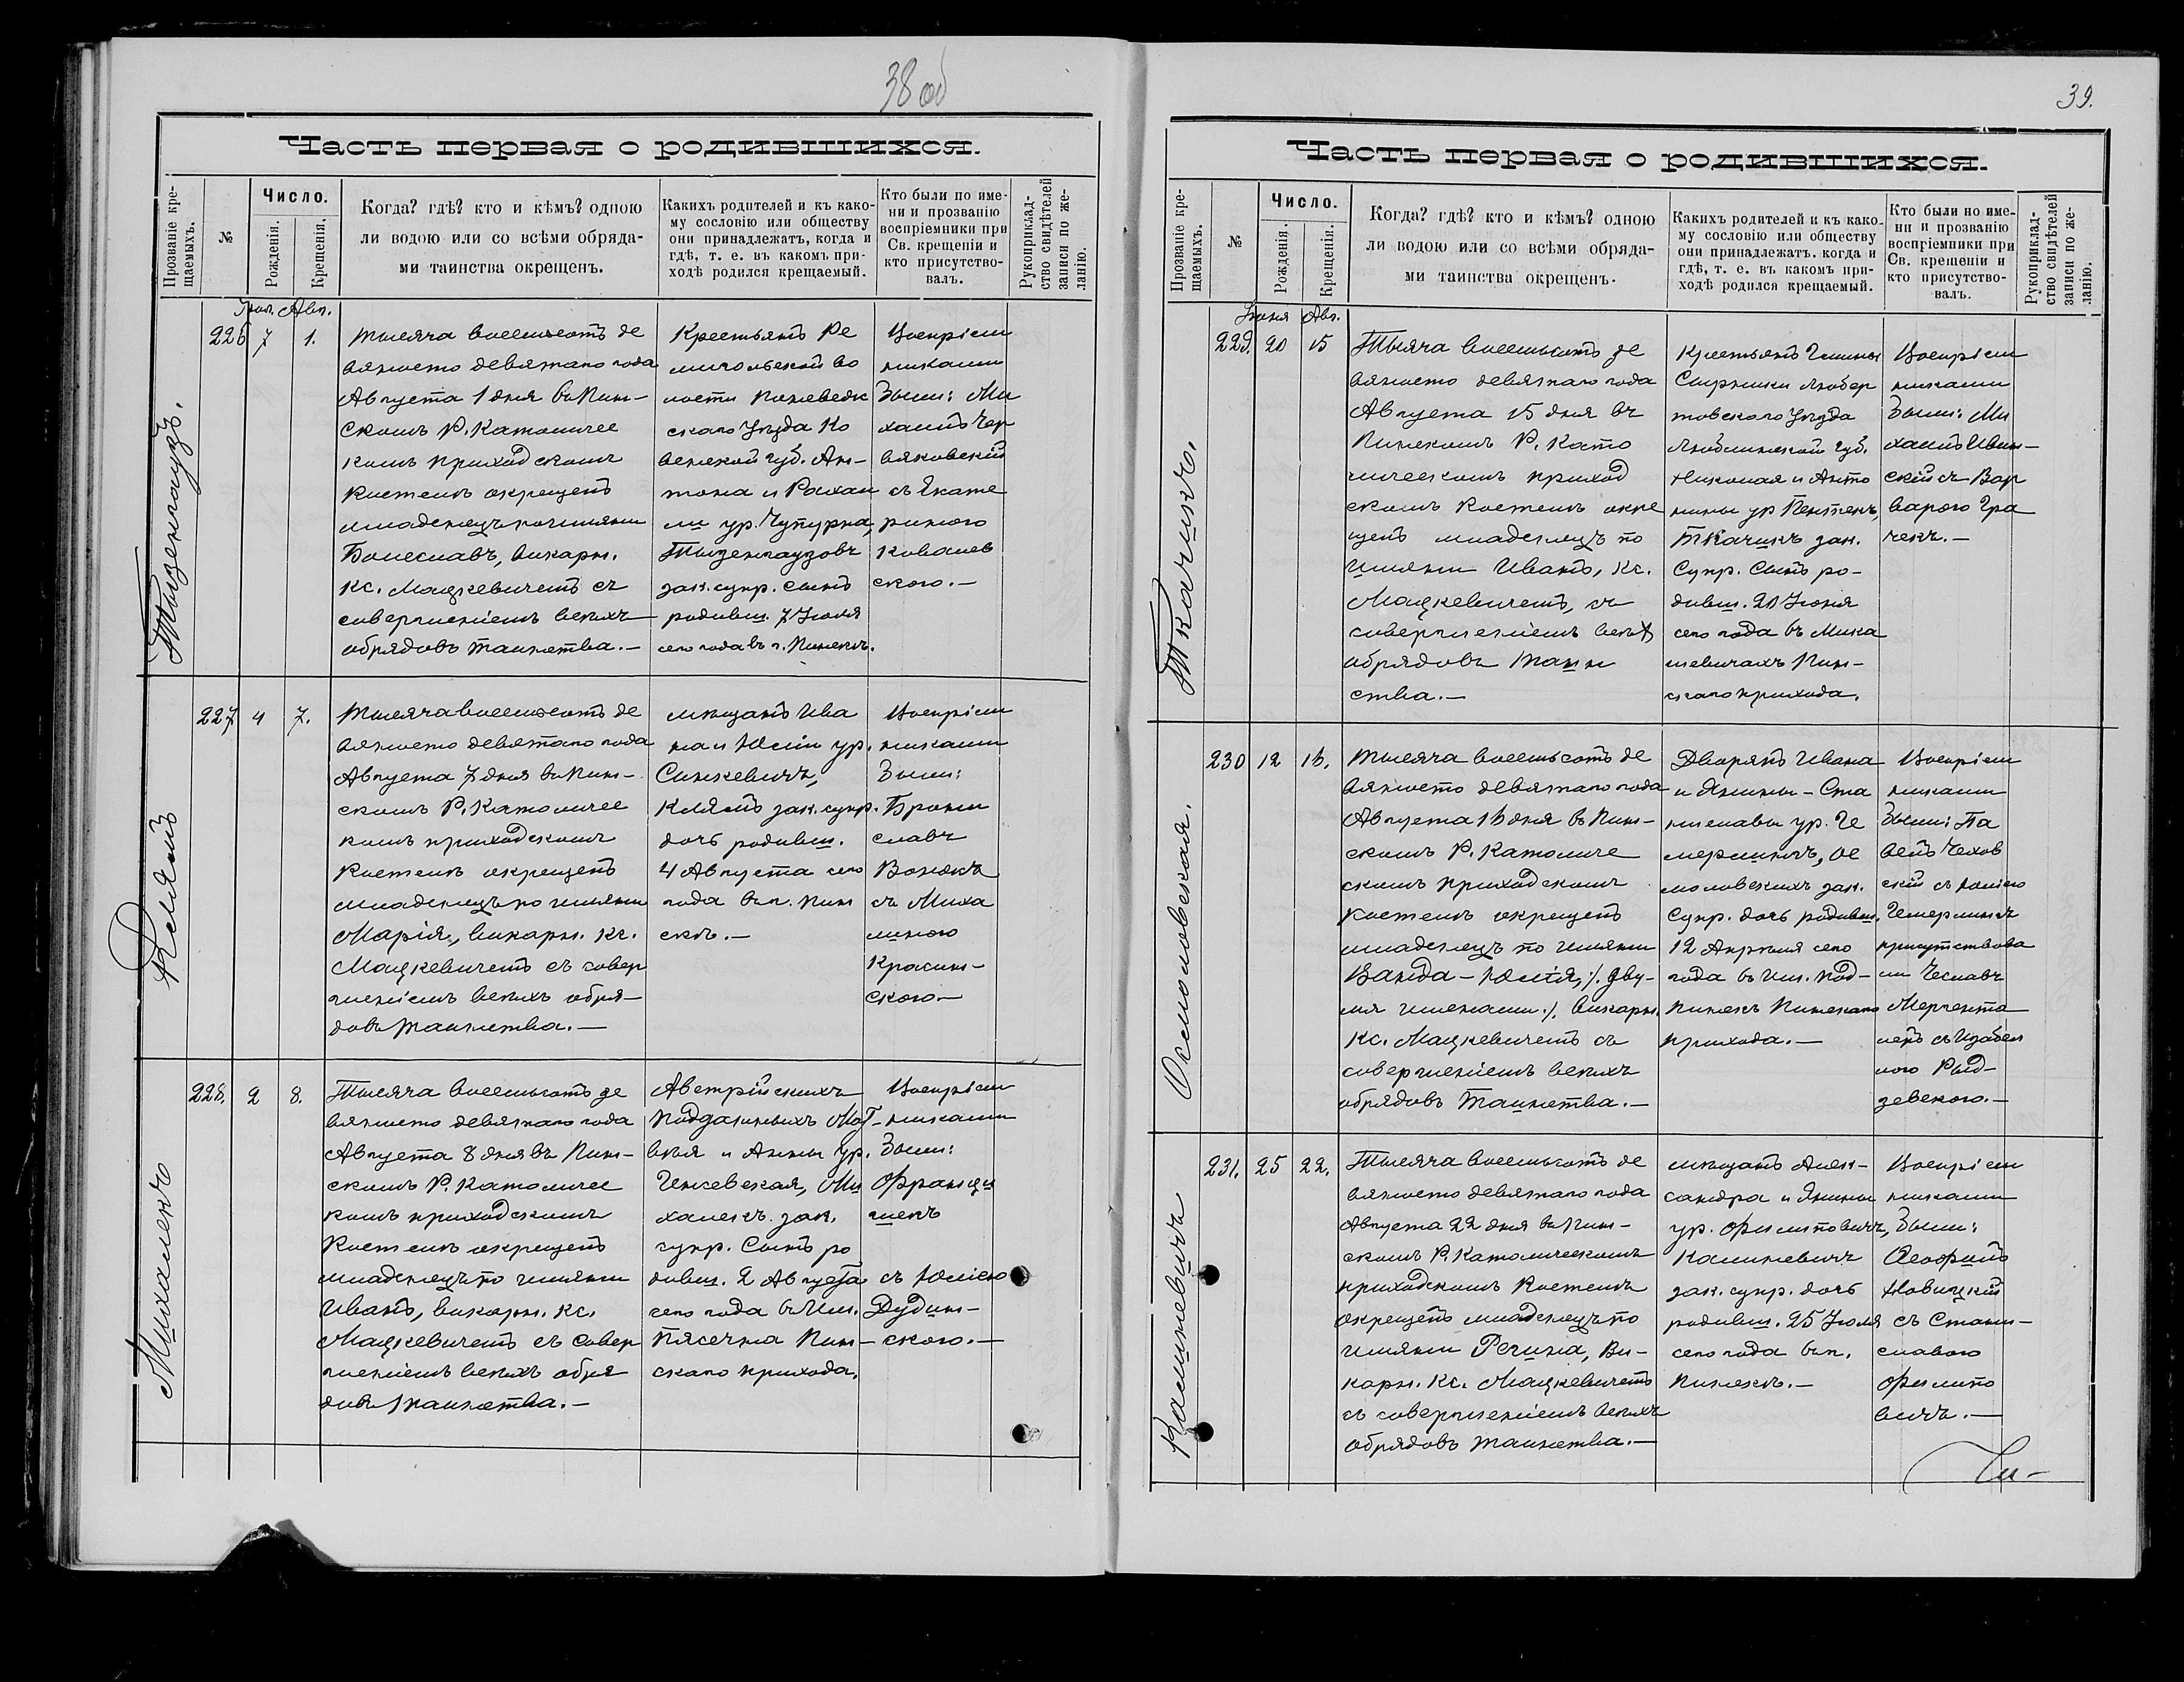 38 об
Часть первая о родившихся.
Прозваніе кре-
щаемыхъ.
№
Число.
Рожденія.
Крещенія.
Когда? гдѣ? кто и кѣмъ? одною
ли водою или со всѣми обряда-
ми таинства окрещенъ.
Какихъ родителей и къ како-
му сословію или обществу
они принадлежатъ, когда и
гдѣ, т. е. въ какомъ при-
ходѣ родился крещаемый.
Кто были по име-
ни и прозванію
воспріемники при
Св. крещеніи и
кто присутство-
валъ.
Рукоприклад-
ство свидѣтелей
записи по же-
ланію.
Тызенгаузъ.
Авг.
226 7 1.
Тысяча восемьсотъ де
вяносто девятаго года
Августа 1 дня въ Пин-
скомъ Р. Католичес
комъ приходскомъ
костелѣ окрещенъ
младенецъ по имени
Болеславъ, викарн.
кс. Мацкевичемъ съ
совершеніемъ всѣхъ
обрядовъ таинства.—
Крестьянъ
волости Поневеж
скаго Уѣзда Ко
венской губ. Ан-
тона и Рахаи
ли ур. Чупурна,
Тызенгаузовъ
зак. супр. сынъ
родивш. 7 Іюля
сего года въ г. Пинскѣ.
Воспріем
никами
были: Ми
хаилъ Чер
вяковскій
съ Екате
риною
Ковалев
скою.—
Клямъ
227 4 7.
Тысяча восемьсотъ де
вяносто девятаго года
Августа 7 дня въ Пин-
скомъ Р. Католичес
комъ приходскомъ
костелѣ окрещенъ
младенецъ по имени
Марія, викарн. кс.
Мацкевичемъ съ совер
шеніемъ всѣхъ обря-
довъ таинства.—
мѣщанъ Ива
на и Юліи ур.
Синкевичъ,
Клямъ зак. супр.
дочь родивш.
4 Августа сего
года въ г. Пин
скѣ.—
Воспріем
никами
были:
Брони
славъ
Вонякъ
съ Миха
линою
Красин-
скою.—
Михалекъ
228. 2 8.
Тысяча восемьсотъ де
вяносто девятаго года
Августа 8 дня въ Пин-
скомъ Р. Католичес
комъ приходскомъ
костелѣ окрещенъ
младенецъ по имени
Иванъ, викарн. кс.
Мацкевичемъ съ совер
шеніемъ всѣхъ обря
довъ таинства.—
Австрійскихъ
подданныхъ Мат-
вѣя и Анны ур.
Генсевская, Ми
халекъ зак.
супр. Сынъ ро
дивш. 2 Августа
сего года въ им.
Пясечна Пин-
скаго прихода.
Воспріем
никами
были:
Францы
шекъ
съ Юліею
Дудин-
скою.—
39.
Часть первая о родившихся.
Прозваніе кре-
щаемыхъ.
№
Число.
Рожденія.
Крещенія.
Когда? гдѣ? кто и кѣмъ? одною
ли водою или со всѣми обряда-
ми таинства окрещенъ.
Какихъ родителей и къ како-
му сословію или обществу
они принадлежатъ. когда и
гдѣ, т. е. въ какомъ при-
ходѣ родился крещаемый.
Кто были по име-
ни и прозванію
воспріемники при
Св. крещеніи и
кто присутство-
валъ.
Рукоприклад-
ство свидѣтелей
записи по же-
ланію.
Ткачикъ.
Іюня Авг.
229. 20 15
Тысяча восемьсотъ де
вяносто девятаго года
Августа 15 дня въ
Пинскомъ Р. Като
лическомъ приход
скомъ костелѣ окре
щенъ младенецъ по
имени Иванъ, кс.
Мацкевичемъ, съ
совершеніемъ всѣхъ
обрядовъ таин
ства.—
крестьянъ Гмины
Сырники Любар
товскаго Уѣзда
Люблинской губ.
Николая и Анто
нины ур Пентекъ,
Ткачикъ зак.
Супр. Сынъ ро-
дивш. 20 Іюня
сего года въ Мика
шевичахъ Пин-
скаго прихода.
Воспріем
никами
были: Ми
хаилъ Ивин-
скій съ Вар
варою Гра
чекъ.—
Осмоловская.
230 12 16.
Тысяча восемьсотъ де
вяносто девятаго года
Августа 16 дня въ Пин-
скомъ Р. Католиче
скомъ приходскомъ
костелѣ окрещенъ
младенецъ по имени
Ванда-Юлія, /. дву-
мя именами ./. викарн.
Кс. Мацкевичемъ съ
совершеніемъ всѣхъ
обрядовъ Таинства.—
Дворянъ Ивана
и Янины-Ста
ниславы ур. Ге
мерлингъ, Ос
моловскихъ зак.
супр. дочь родивш.
12 Апрѣля сего
года въ им. Под-
пинскъ Пинскаго
прихода.—
Воспріем
никами
были: Па
велъ Чехов
скій съ Юліею
Гемерлингъ
присутствова
ли Чеславъ
съ Изабел
лою Рыд-
зевскою.—
Калиневичъ
231. 25 22.
Тысяча восемьсотъ де
вяносто девятаго года
Августа 22 дня въ Пин-
скомъ Р. Католическомъ
приходскомъ костелѣ
окрещенъ младенецъ по
имени Регина, Ви-
карн. кс. Мацкевичемъ
съ совершеніемъ всѣхъ
обрядовъ таинства.—
мѣщанъ Алек-
сандра и Янины
ур. Филиповичъ,
Калиневичъ
зак. супр. дочь
родивш. 25 Іюля
сего года въ г.
Пинскѣ.—
Воспріем
никами
были:
Теофилъ
Новицкій
съ Стани-
славою
Филипо
вичъ.—